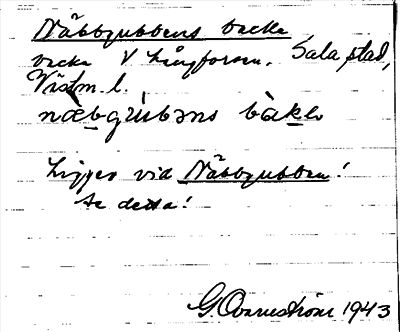 Näbbgubbens backe
backe V Långforsen. Sala stad,
Västm. l.
næbgúbəns bàkə
Ligger vid Näbbgubben!
Se detta!
G. Qvarnström 1943